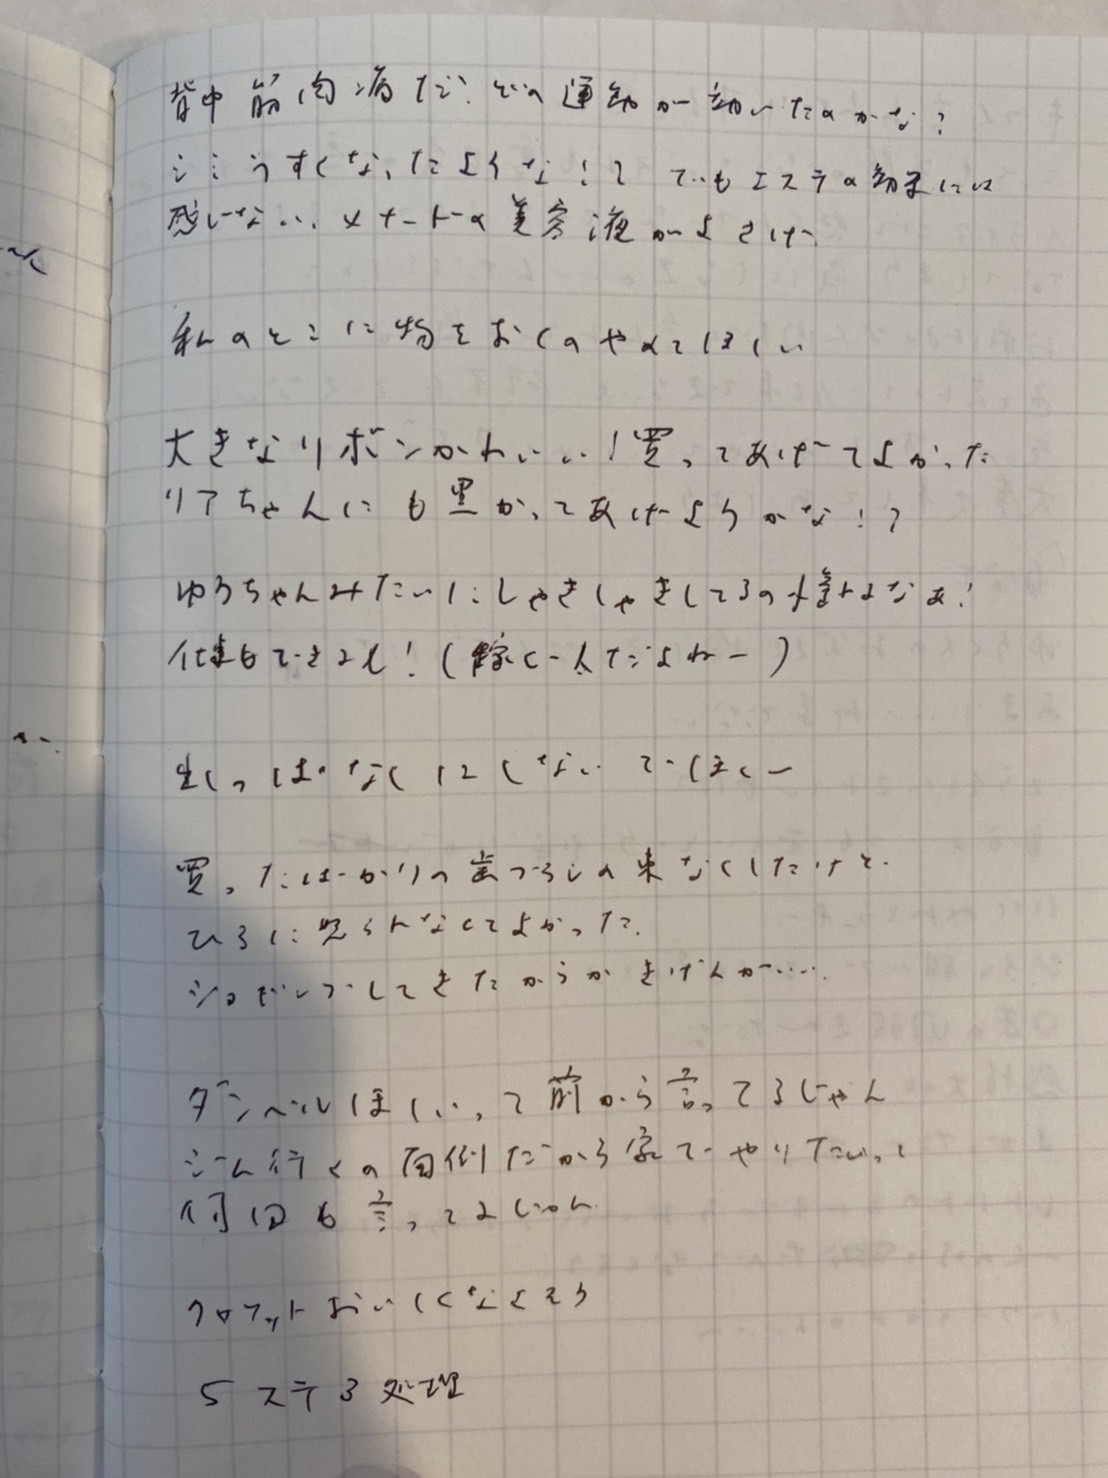 背中筋肉痛だ。どの運動が効いたのかな?
シミうすくなったような!? でもエステの効果には
感じない、メナードの美容液がよさげ、
私のとこに物をおくのやめてほしい
大きなリボンかわいい!買ってあげてよかった
リアちゃんにも黒かってあげようかな!?
ゆうちゃんみたいにしゃきしゃきしてるの憧れるなぁ!
仕事もできるし!(稼ぐ 人だよねー)
出しっぱなしにしないでほしー
買ったばかりの歯ブラシの束なくしたけど
ひろに見られなくてよかった。
してきたからかきげんが.....
ダンベルほしいって前から言ってるじゃん
ジム行くの面倒だから家でやりたいって
何回も言ってるじゃん
クロワット おいしくなくそう
5 ステ 3 処理